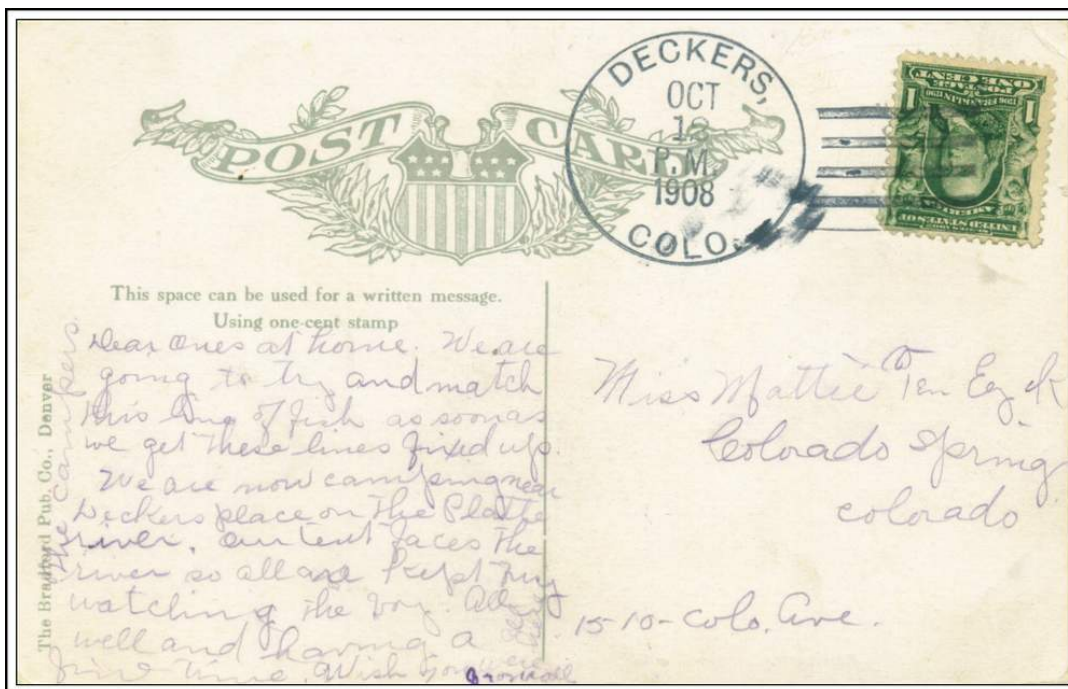 POST CARD
DECKERS,
OCT
P.M.
1908
COLO.
1
1
ONE CENT
This space can be used for a written message.
Using one-cent stamp
The Bradford Pub. Co., Denver
Dear ones at home. We are
going to try and match
this line of fish as soon as
we get these lines fixed up.
We are now camping near
Deckers place on the Platte
river, our tent faces the
river so all are kept busy
watching the boy. All
well and having a
fine time. Wish you were
from all
the campers
Miss Mattie Ten Eyck
Colorado Spring
Colorado
1510-Colo. Ave.